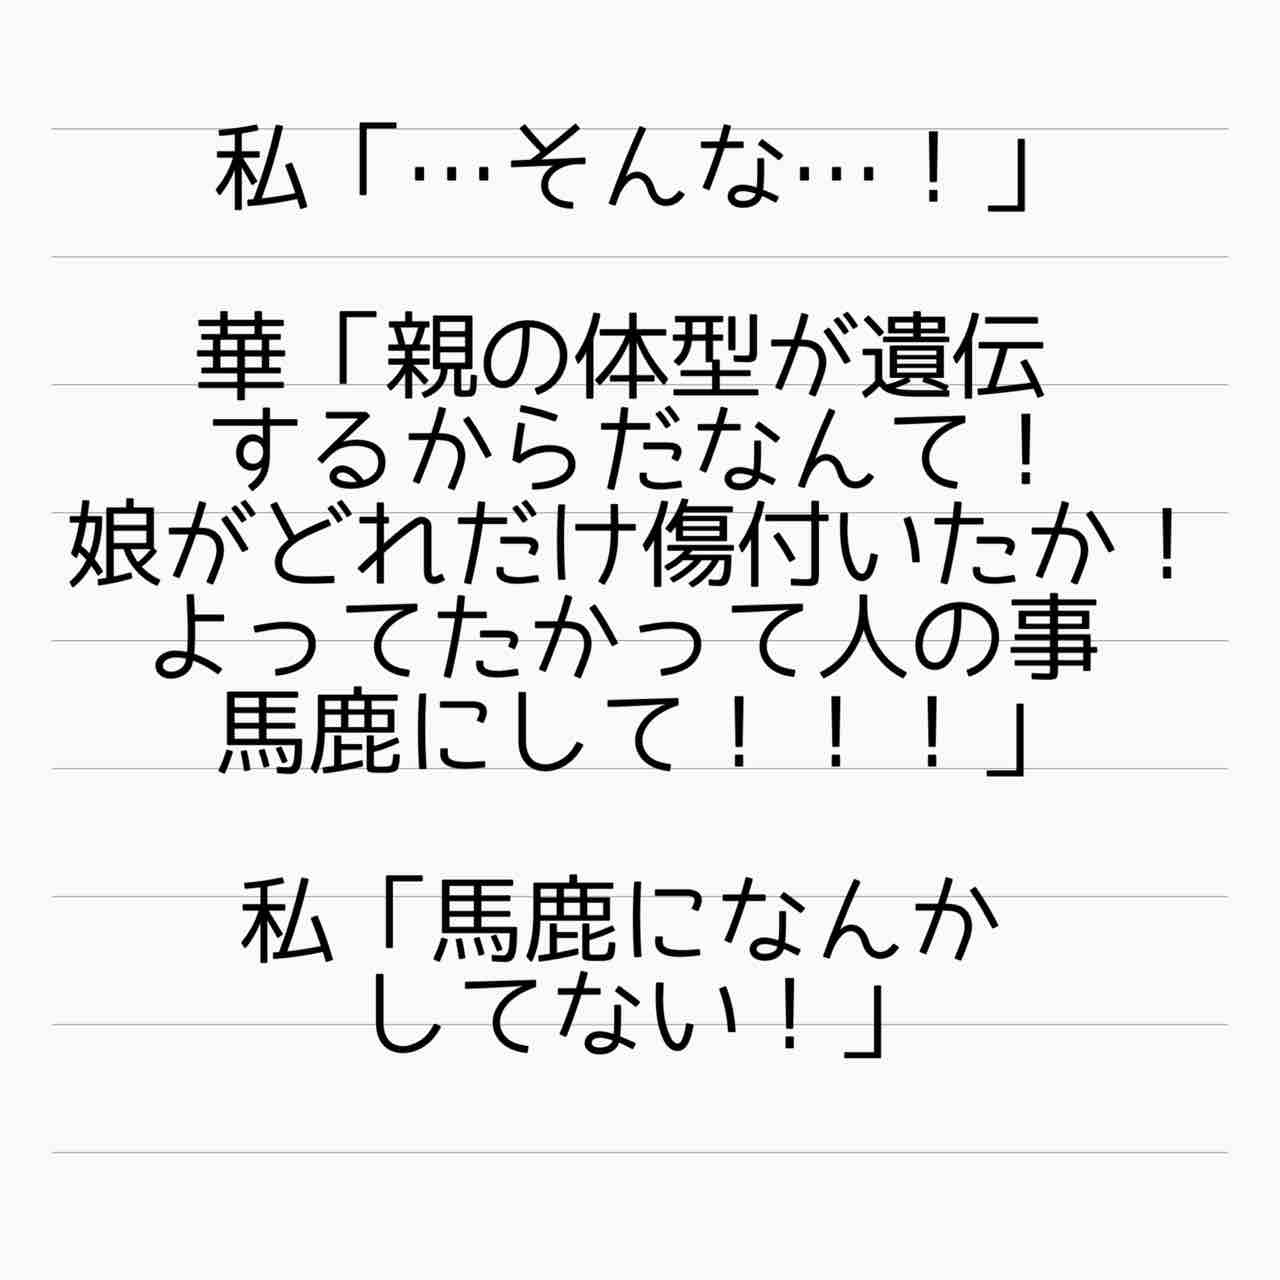 私「…そんな…！」
華「親の体型が遺伝
するからだなんて！
娘がどれだけ傷付いたか！
よってたかって人の事
馬鹿にして！！！」
私「馬鹿になんか
してない！」